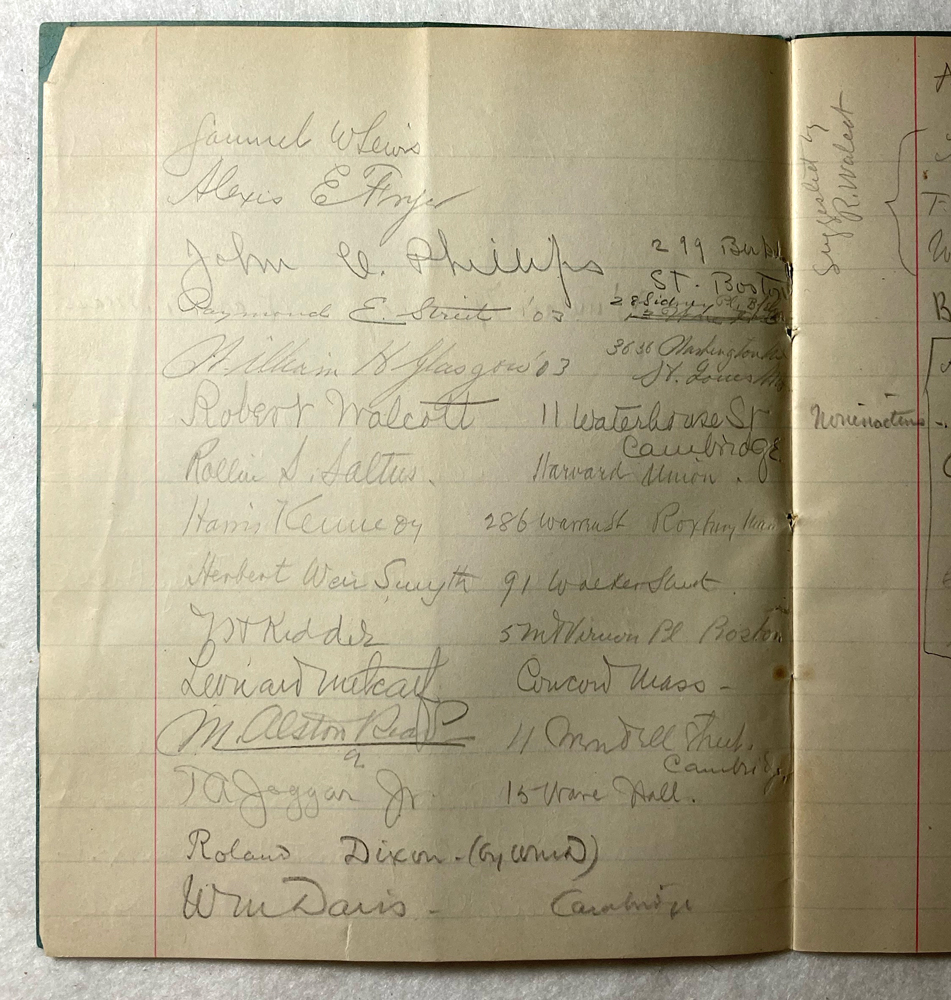 Samuel W Lewis
Alexis E Fryer
John C. Phillips 299 Berk
St. Boston
Raymond E. Street '03 28 Sidney
William H Glasgow '03 3636 Washington
St. Louis Mo
Robert Walcott 11 Waterhouse St
Cambridge
Rollin S. Saltus. Harvard Union.
Harris Kennedy 286 Warren St Roxbury Mass
Herbert Weir Smyth 91 Walker Street
Kidder 5 Mt Vernon Pl Boston
Leonard Metcalf Concord Mass -
M. Alston Read 11 Street.
a Cambridge
T A Jaggar Jr. 15 Ware Hall.
Roland Dixon - (by WMD)
Wm Davis - Cambridge
Suggested by
R. Walcott
Nominations -